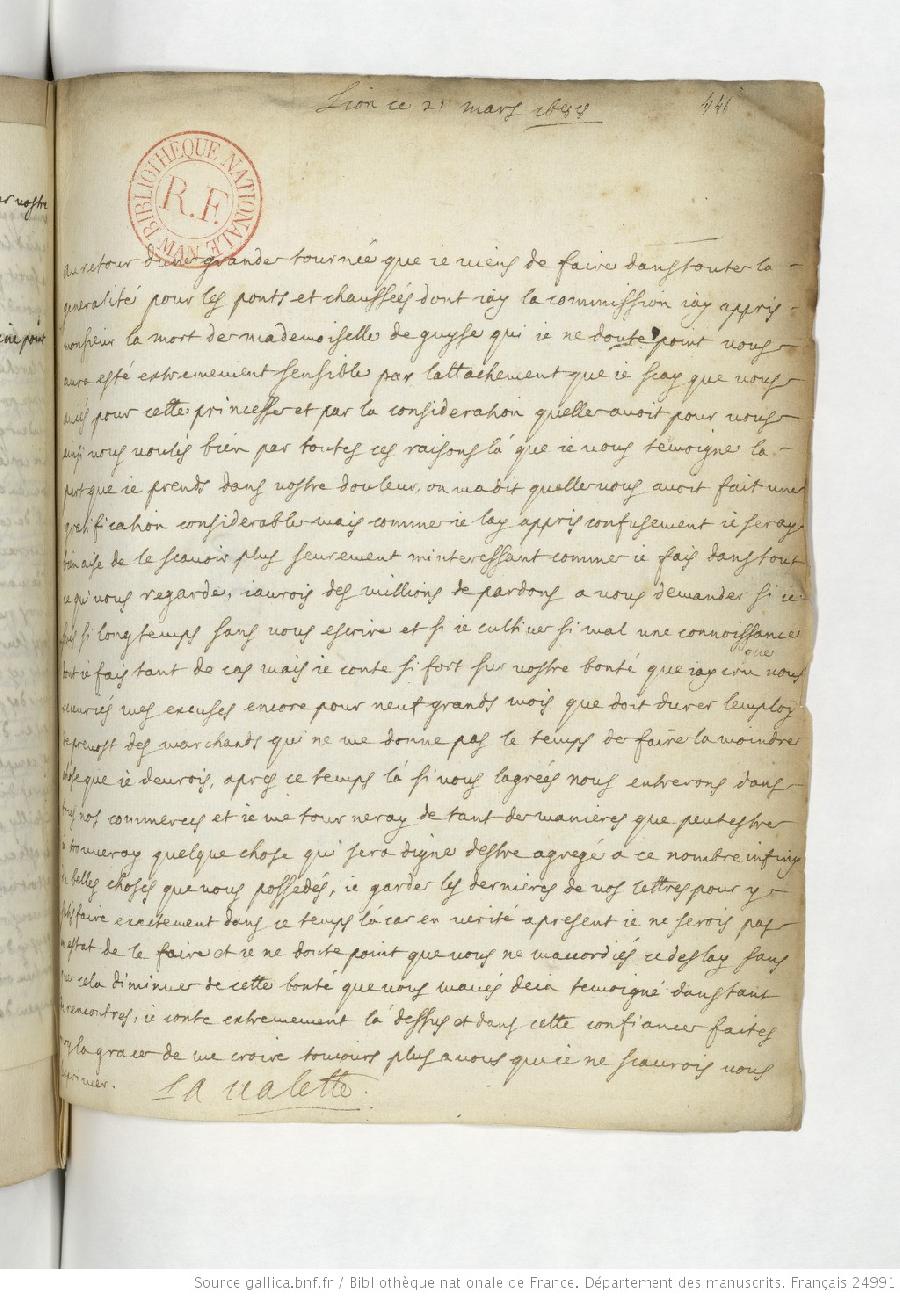 Lion ce 21 mars 1688
441
BIBLIOTHEQUE NATIONALE MAN
R.F.
au retour d'une grande tournée que ie viens de faire dans toute la
generalité pour les ponts et chaussées dont iay la commission iay appris
monsieur la mort de mademoiselle de guyse qui ie ne doute point vous
aura esté extremement sensible par lattachement que ie scay que vous
aviés pour cette princesse et par la consideration quelle avoit pour vous
vous voulés bien par toutes ces raisons là que ie vous temoigne la
part que ie prends dans vostre douleur, on ma dit quelle vous avoit fait une
gratification considerable mais comme ie lay appris confusement ie seray
bien aise de le scavoir plus seurement minteressant comme ie fais dans tout
ce qui vous regarde, iaurois des millions de pardons a vous demander si ie
suis si longtemps sans vous escrire et si ie cultive si mal une connoissance
dont ie fais tant de cas mais ie conte si fort sur vostre bonté que iay cru que vous
recevriés mes excuses encore pour neuf grands mois que doit durer lemploy
de prevost des marchands qui ne me donne pas le temps de faire la moindre
chose que ie devrois, apres ce temps là si vous lagreés nous entrerons dans
tous nos commerces et ie me tourneray de tant de manieres que peutestre
ie trouveray quelque chose qui sera digne destre agregé a ce nombre infiny
de belles choses que vous possedés, ie garde les dernieres de vos lettres pour y
satisfaire exactement dans ce temps là car en verité apresent ie ne serois pas
en estat de le faire et ie ne doute point que vous ne maccordiés ce deslay sans
que cela diminue de cette bonté que vous mavés deia temoigné dans tant
de rencontres, ie conte extremement là dessus et dans cette confiance faites
moy la grace de me croire touiours plus a vous que ie ne scaurois vous
exprimer.
La valette
Source gallica.bnf.fr / Bibliothèque nationale de France. Département des manuscrits. Français 24991